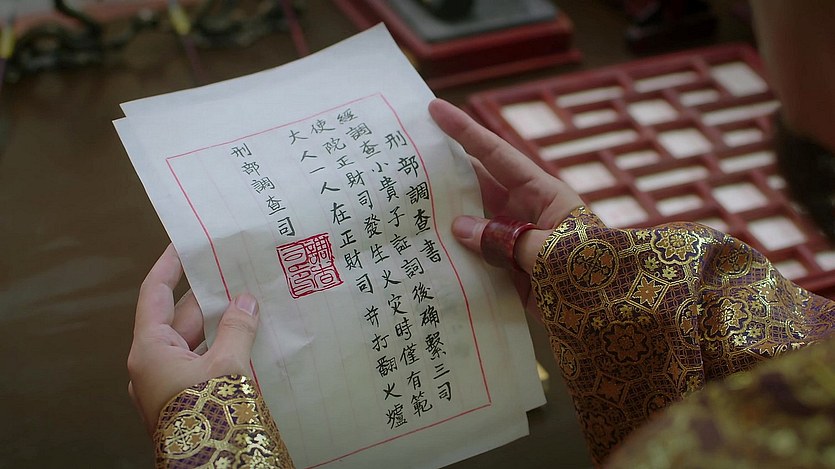 刑部調查書
經調查小貴子証詞後確繫三司
使陀正財司發生火灾時僅有範
大人一人在正財司 并打翻火爐
刑部調查司
調查司印